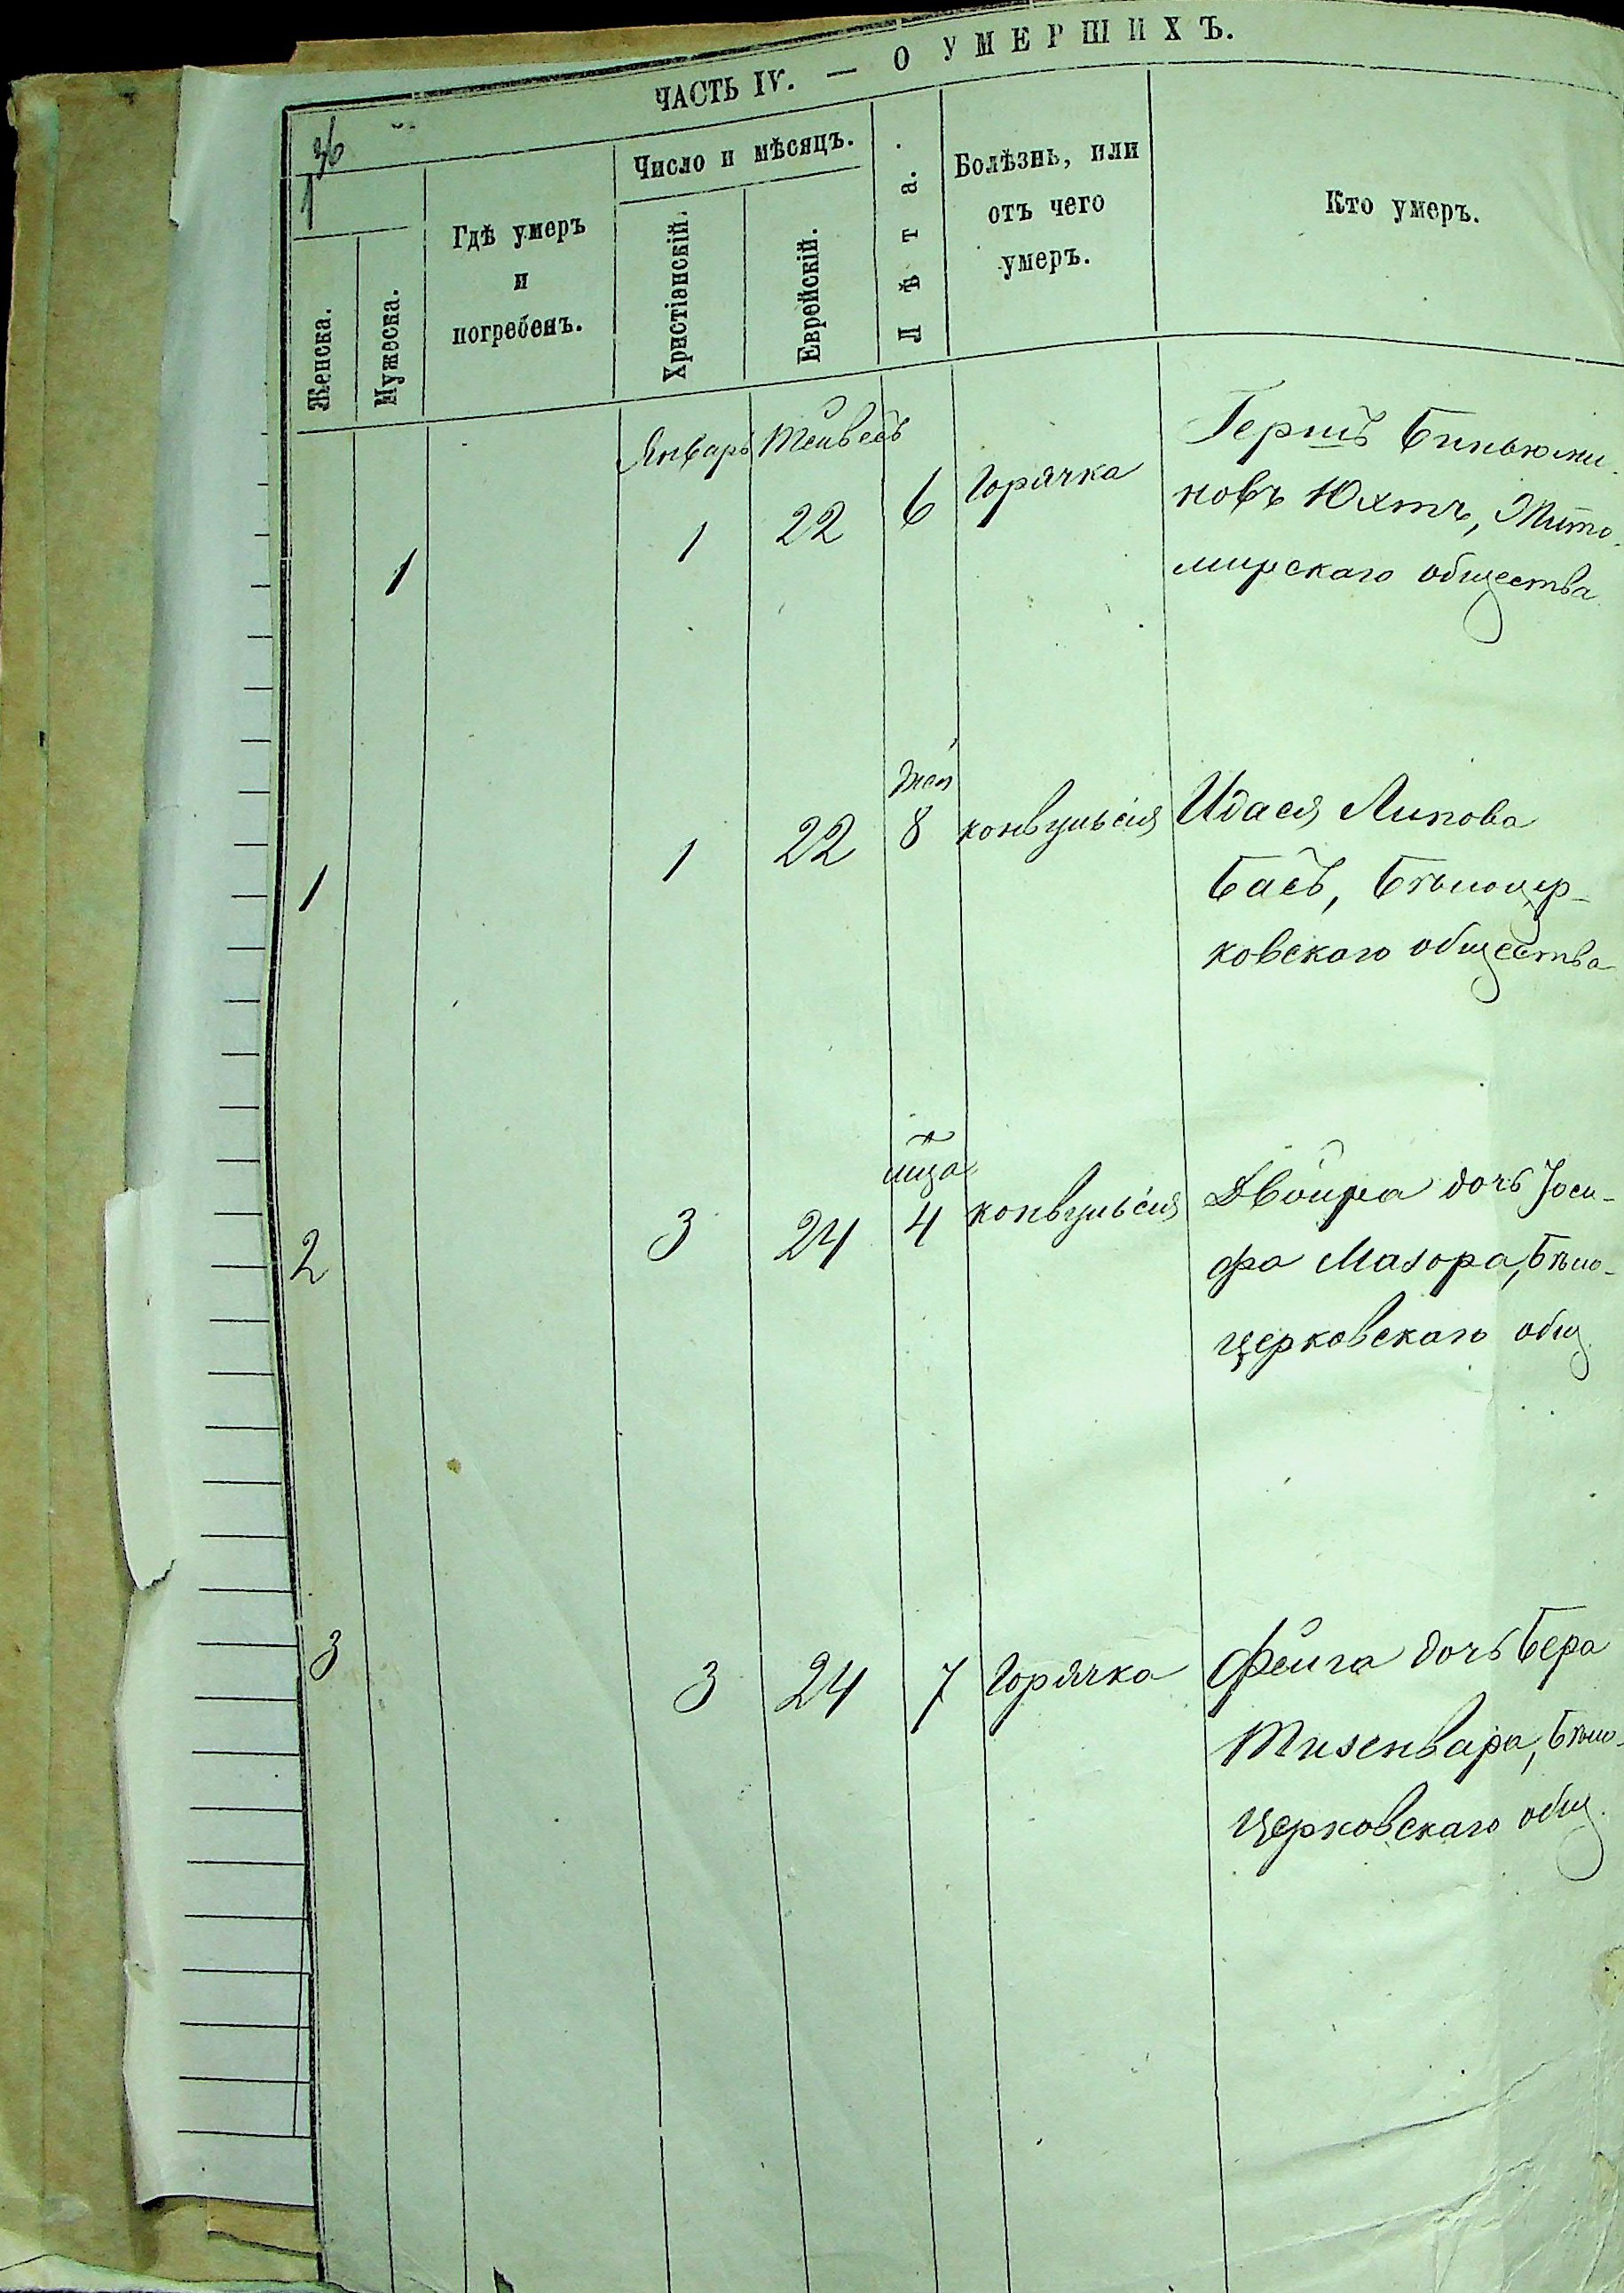 ЧАСТЬ IV. — О УМЕРШИХЪ.
Женска.
Мужеска.
Гдѣ умеръ
и
погребенъ.
Число и мѣсяцъ.
Христіанскій.
Еврейскій.
Лѣта.
Болѣзнь, или
отъ чего
умеръ.
Кто умеръ.
Январь Тейвесъ
1 1 22 6 Горячка
Гершъ Биньюми-
новъ Юхтъ, Жито-
мирскаго общества
1 1 22 8 конвульсія
Идася Липова
Басъ, Бѣлоцер-
ковскаго общества
2 3 24 4 конвульсія
Двойра дочь Іоси-
фа Мазора, Бѣло-
церковскаго общ
3 3 24 7 Горячка
Фейга дочь Бера
Тизенвара, Бѣло-
церковскаго общ.